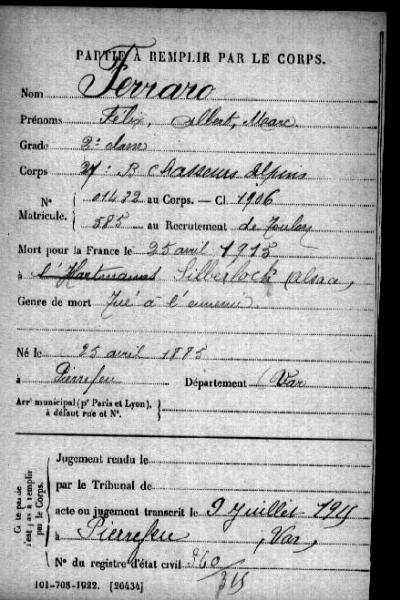 PARTIE À REMPLIR PAR LE CORPS.
Nom Ferraro
Prénoms Félix, Albert, Marc.
Grade 2e classe
Corps 27e B Chasseurs Alpins
Nº 01432 au Corps. — Cl. 1906
Matricule. 585 au Recrutement de Toulon
Mort pour la France le 25 avril 1915
à l'Hartmanns Silberloch (Alsace)
Genre de mort Tué à l'ennemi
Né le 25 avril 1885
à Pierrefeu Département (Var
Arrt municipal (pr Paris et Lyon),
à défaut rue et Nº.
Cette partie
n'est pas à remplir
par le Corps.
Jugement rendu le
par le Tribunal de
acte ou jugement transcrit le 9 Juillet 1915
à Pierrefeu (Var)
Nº du registre d'état civil 960/315
101-708-1922. [26434]